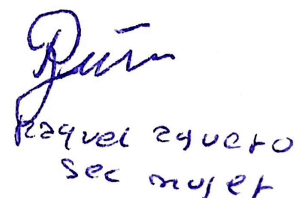 Raquel aguero
Sec mujer